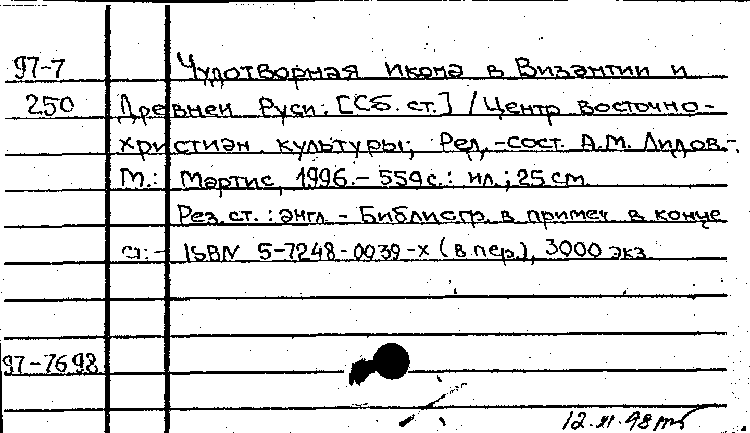 97-7 Чудотворная икона в Византии и
250 Древней Руси: [Сб. ст.] / Центр восточно-
христиан. культуры; Ред.-сост. А.М. Лидов.-
М.: Мартис, 1996.- 559 с.: ил.; 25 см
Рез. ст.: англ. - Библиогр. в примеч. в конце
ст. - ISBN 5-7248-0039-х (в пер.), 3000 экз.
97-7698
12.XI.98